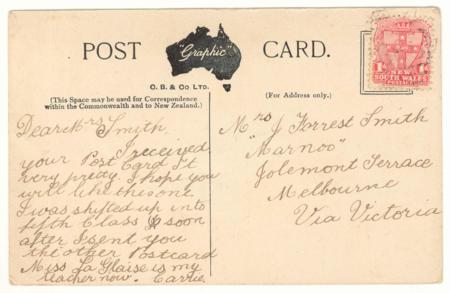 POST "Graphic" CARD.
C. B. & Co LTD.
(This Space may be used for Correspondence
within the Commonwealth and to New Zealand.)
(For Address only.)
NEW
SOUTH WALES
POSTAGE
Dear Mrs Smith,
I received
your Post Card It
very pretty. I hope you
will like this one
I was shifted up into
fifth Class soon
after I sent you
the other Postcard
Miss La Glaise is my
teacher now. Carrie.
Mrs J Forrest Smith
"Marnoo"
Jolemont Terrace
Melbourne
Via Victoria